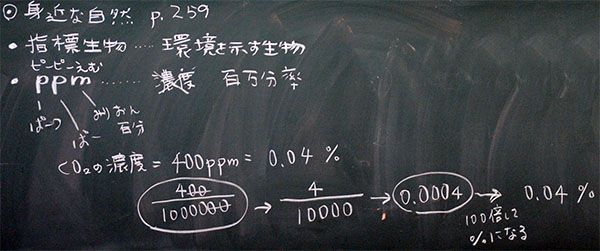 ◎ 身近な自然 p.259
・指標生物 ‥‥ 環境を示す生物
ピーピーえむ
・ppm ‥‥‥ 濃度 百万分率
ぱーつ ぱー みりおん
百万
CO₂の濃度 = 400ppm = 0.04 %
400/1000000 → 4/10000 → 0.0004 → 0.04 %
100倍して
%になる